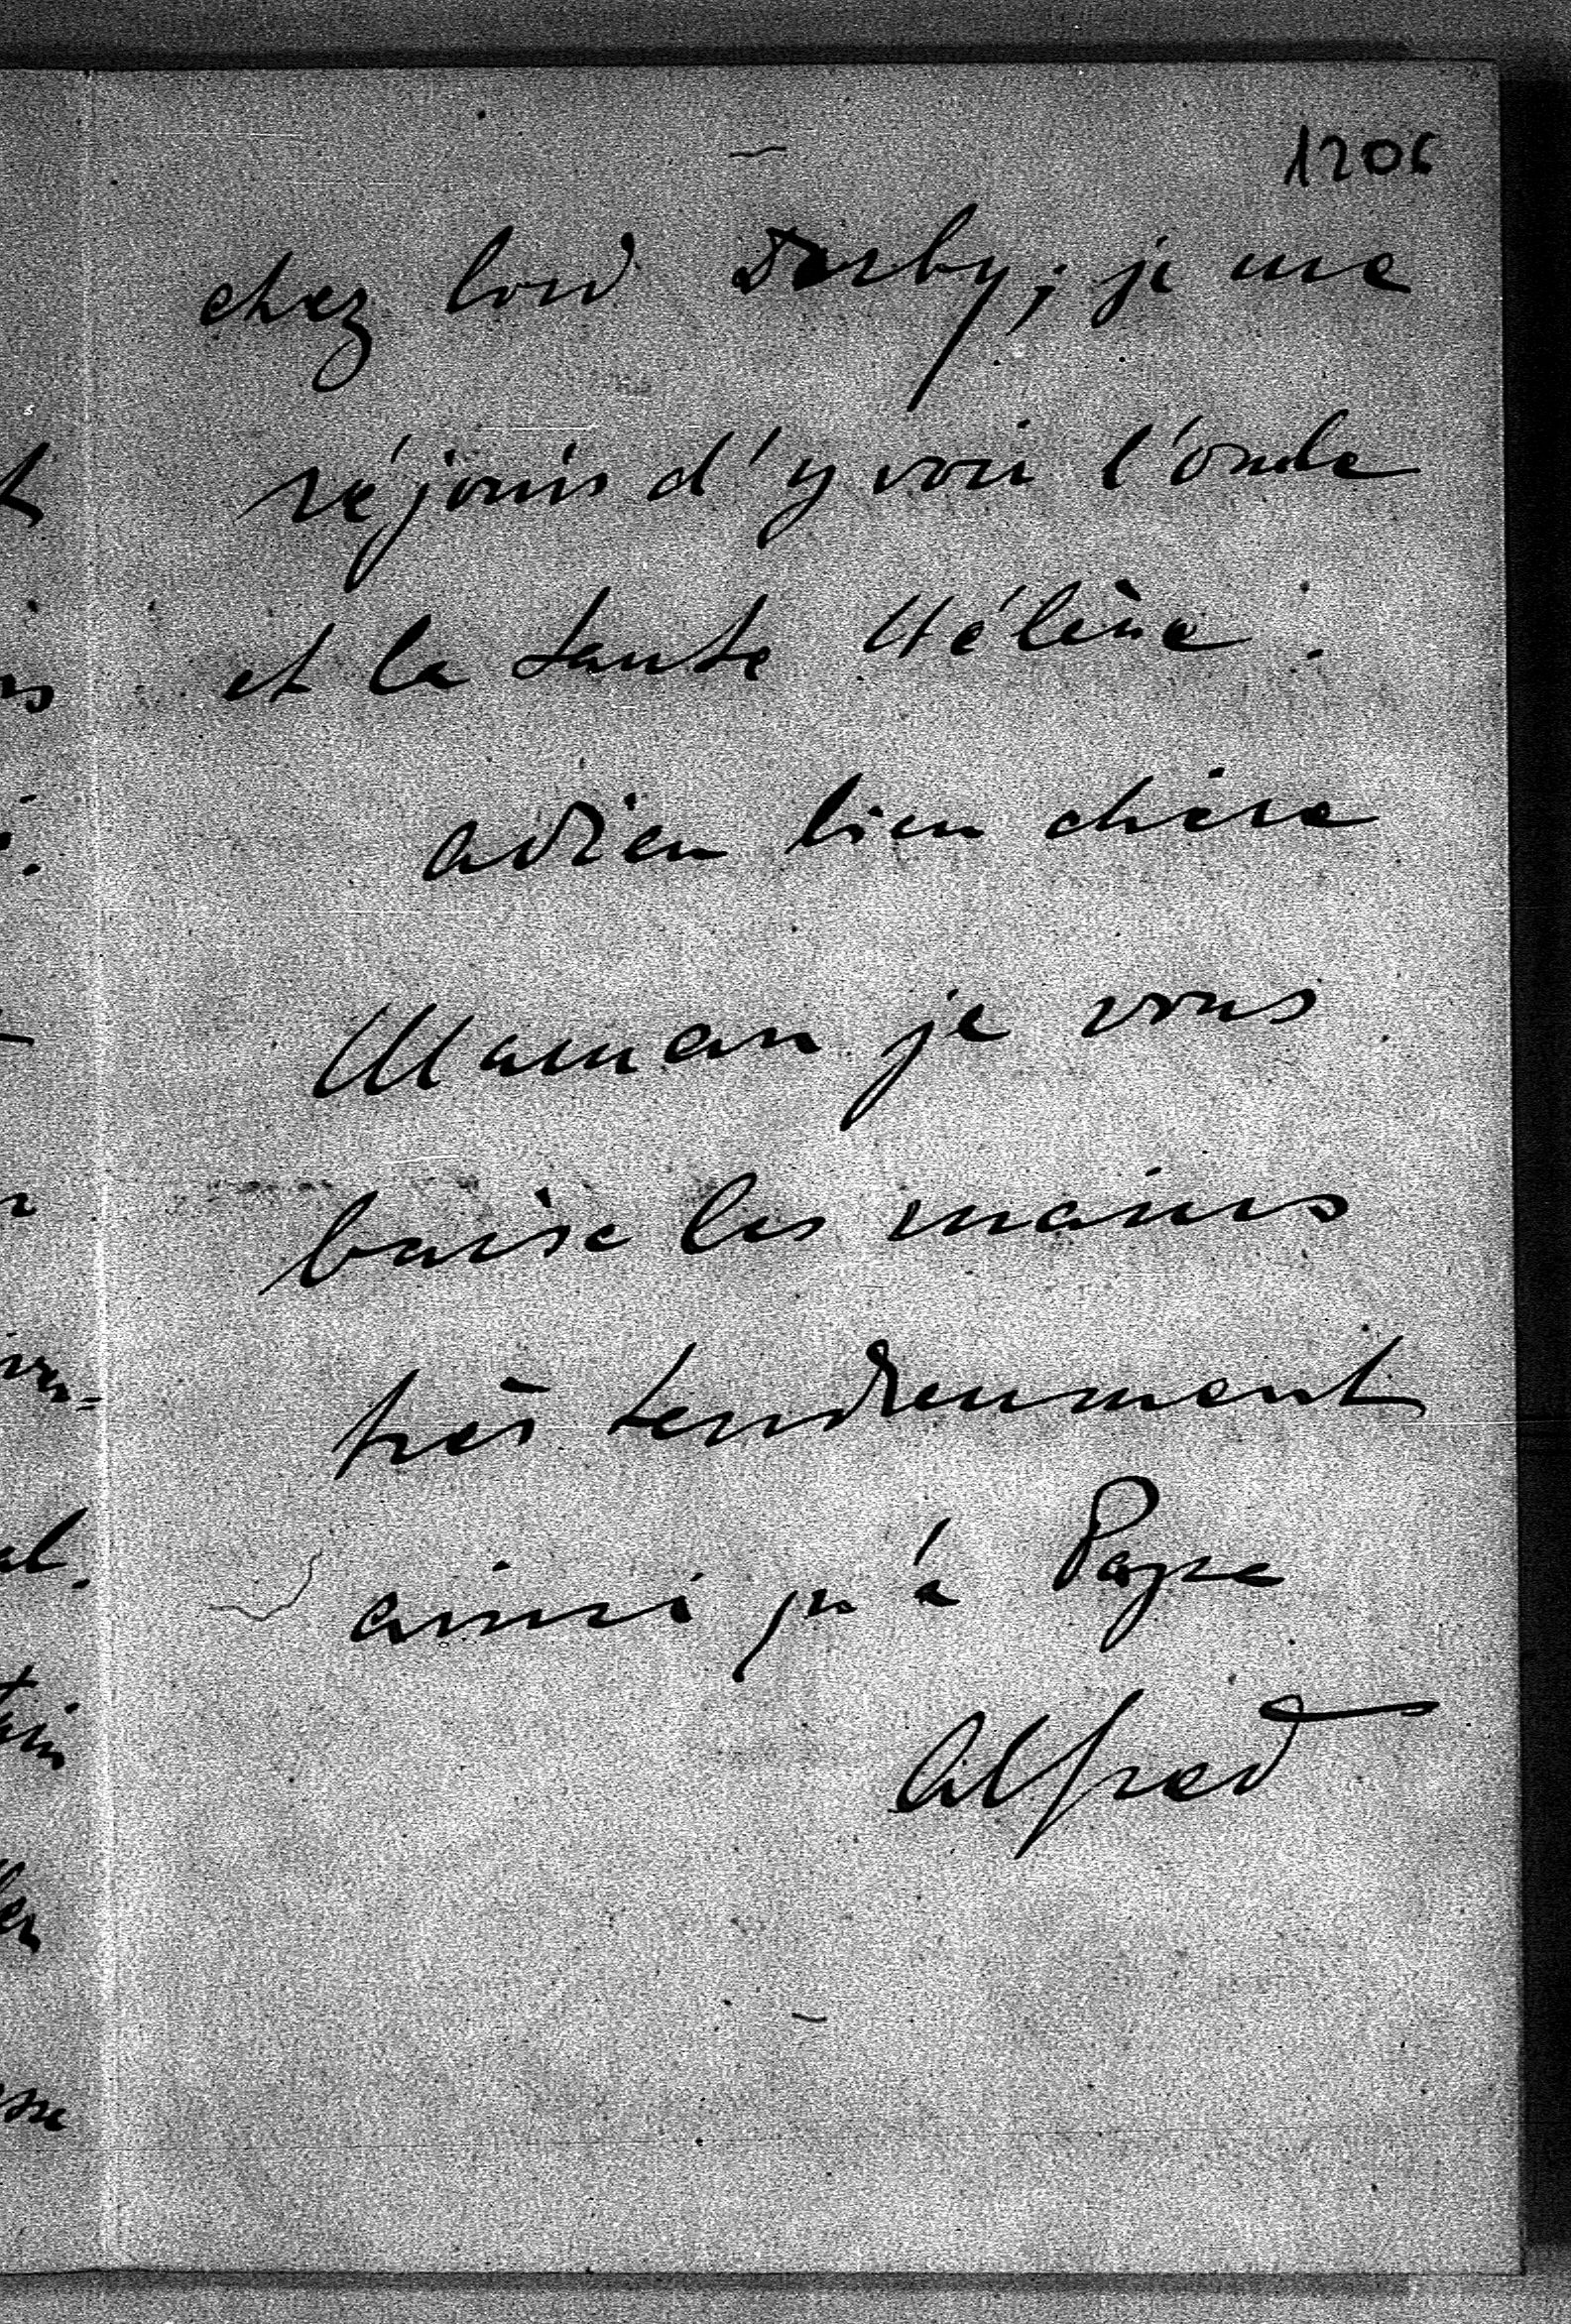 1206
chez lord Derby; je me
réjouis d'y voir l'oncle
et la tante Hélène.
adieu bien chère
Maman je vous
baise les mains
très tendrement
ainsi qu'à Papa
Alfred